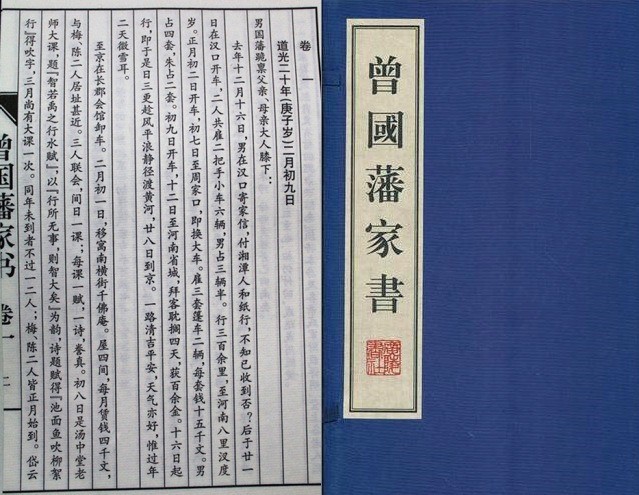 卷一
道光二十年(庚子岁)二月初九日
男国藩跪禀父亲、母亲大人膝下：
去年十二月十六日，男在汉口寄家信，付湘潭人和纸行，不知已收到否？后于廿一
日在汉口开车，二人共雇二把手小车六辆，男占三辆半。行三百余里，至河南八里汊度
岁。正月初二日开车，初七日至周家口，即换大车。雇三套篷车二辆，每套钱十五千文。男
占四套，朱占二套。初九日开车，十二日至河南省城，拜客耽搁四天，获百余金。十六日起
行，即于是日三更趁风平浪静径渡黄河，廿八日到京。一路清吉平安，天气亦好，惟过年
二天微雪耳。
至京在长郡会馆卸车。二月初一日，移寓南横街千佛庵。屋四间，每月赁钱四千文，
与梅、陈二人居址甚近。三人联会，间日一课；每课一赋，一诗，誊真。初八日是汤中堂老
师大课，题『智若禹之行水赋』，以『行所无事，则智大矣』为韵，诗题赋得『池面鱼吹柳絮
行』得吹字，三月尚有大课一次。同年未到者不过一二人；梅、陈二人皆正月始到。岱云
曾国藩家书 卷一 二
曾國藩家書